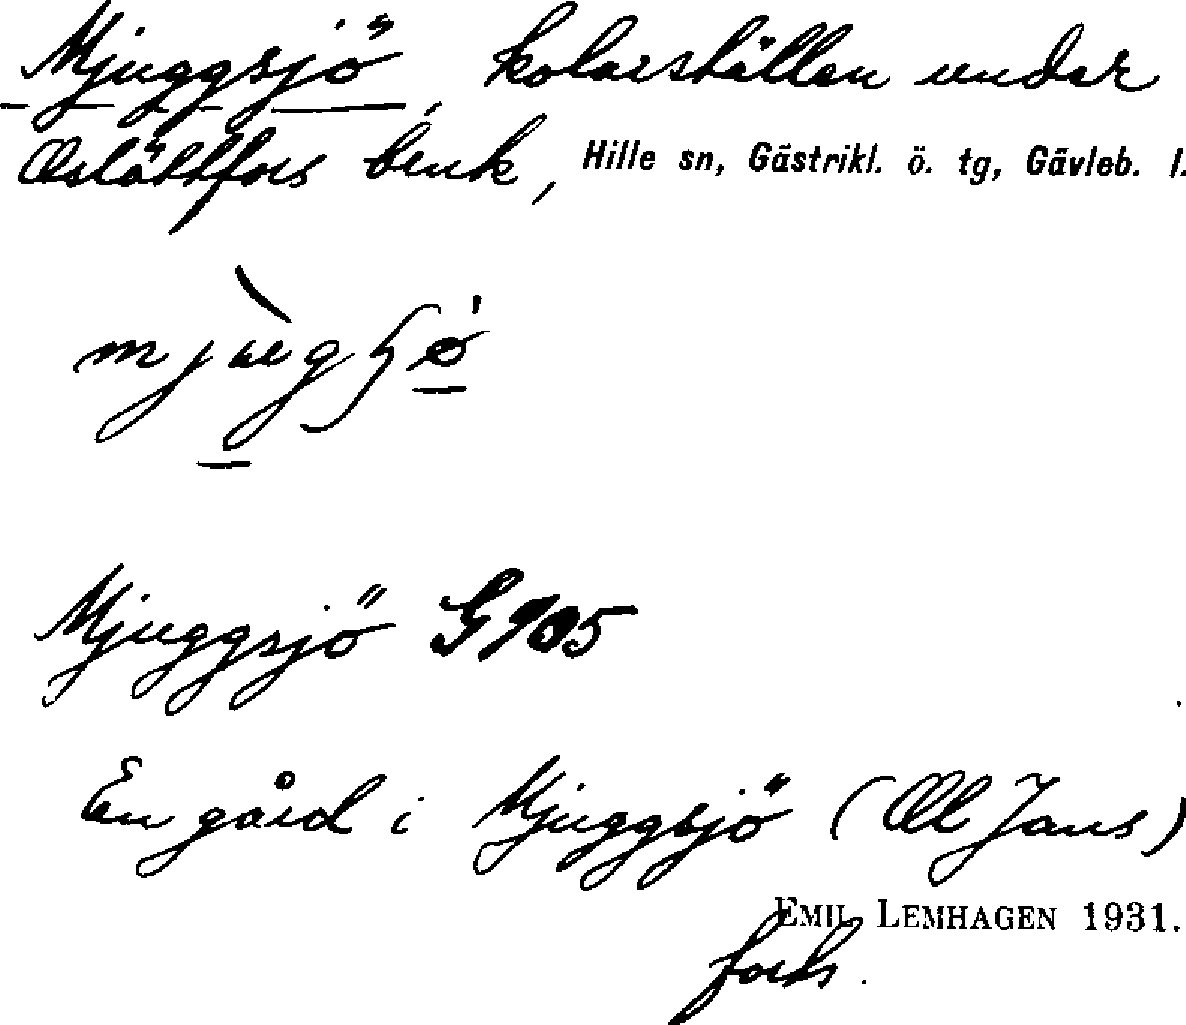 Mjuggsjö, kolarställen under
Oslättfors bruk, Hille sn, Gästrikl. ö. tg, Gävleb. l.
Mjuggsjö G 105
En gård i Mjuggsjö (Ol Jans)
EMIL LEMHAGEN 1931.
forts.